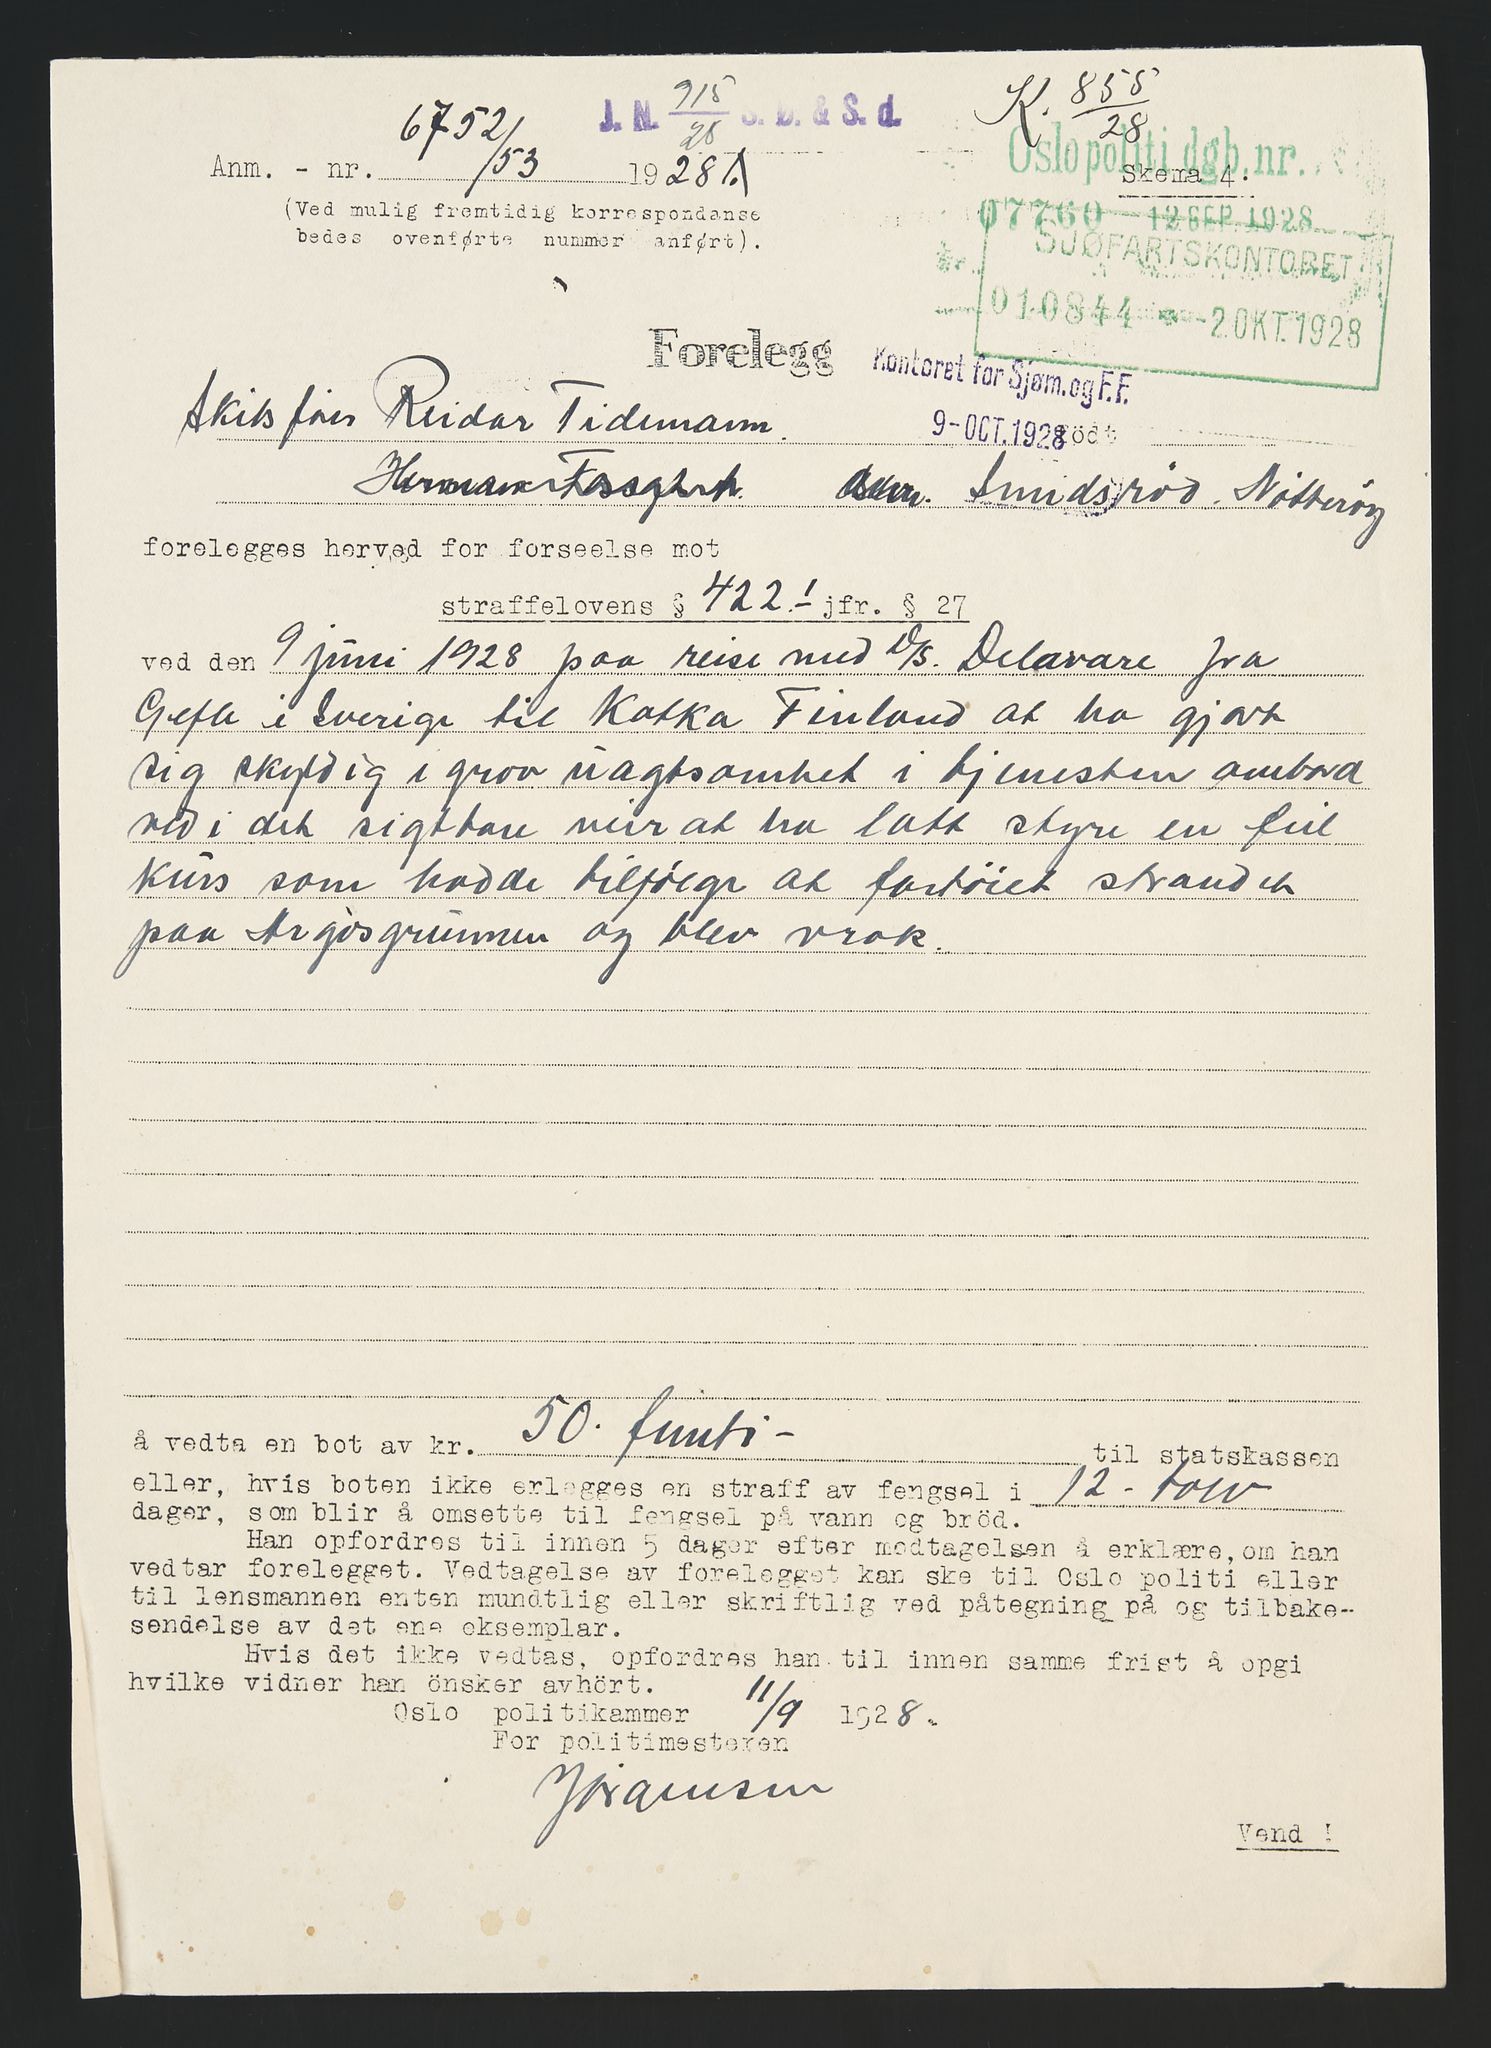 J. N. 915/28 S. D. & S. d.
K. 855/28
6752/53
Anm. - nr. 1928
Oslo politi dgb. nr.
Skema 4:
(Ved mulig fremtidig korrespondanse
bedes ovenførte nummer anført).
07760 12 SEP. 1928
SJØFARTSKONTORET
010844 - 2 OKT. 1928
Forelegg
Kontoret for Sjøm. og F.F.
9-OCT. 1928
Skibsfører Reidar Tidemann. födt
Smidsröd. Nötteröy
forelegges herved for forseelse mot
straffelovens § 422.1 jfr. § 27
ved den 9 juni 1928 paa reise med D/S. Delavare fra
Gefle i Sverige til Kotka Finland at ha gjort
sig skyldig i grov uagtsomhet i tjenesten ombord
ved i det sigtbare veir at ha latt styre en feil
kurs som hadde tilfölge at fartöiet strandet
paa Argosgrunnen og blev vrak.
å vedta en bot av kr. 50. femti - til statskassen
eller, hvis boten ikke erlegges en straff av fengsel i 12 - tolv
dager, som blir å omsette til fengsel på vann og bröd.
Han opfordres til innen 5 dager efter modtagelsen å erklære, om han
vedtar forelegget. Vedtagelse av forelegget kan ske til Oslo politi eller
til lensmannen enten mundtlig eller skriftlig ved påtegning på og tilbake-
sendelse av det ene eksemplar.
Hvis det ikke vedtas, opfordres han til innen samme frist å opgi
hvilke vidner han önsker avhört.
Oslo politikammer 11/9 1928.
For politimesteren
Jörgensen
Vend !